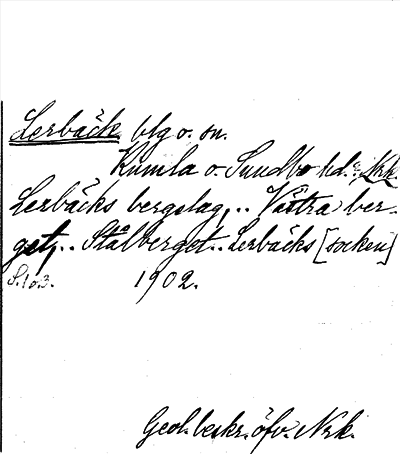 Lerbäck blg o. sn.
Kumla o. Sundbo hd:r Nrk.
Lerbäcks bergslag, .. Västra ber-
get, .. Stålberget .. Lerbäcks [socken]
S. 1 o. 3. 1902.
Geol. beskr. öfv. Nrk.